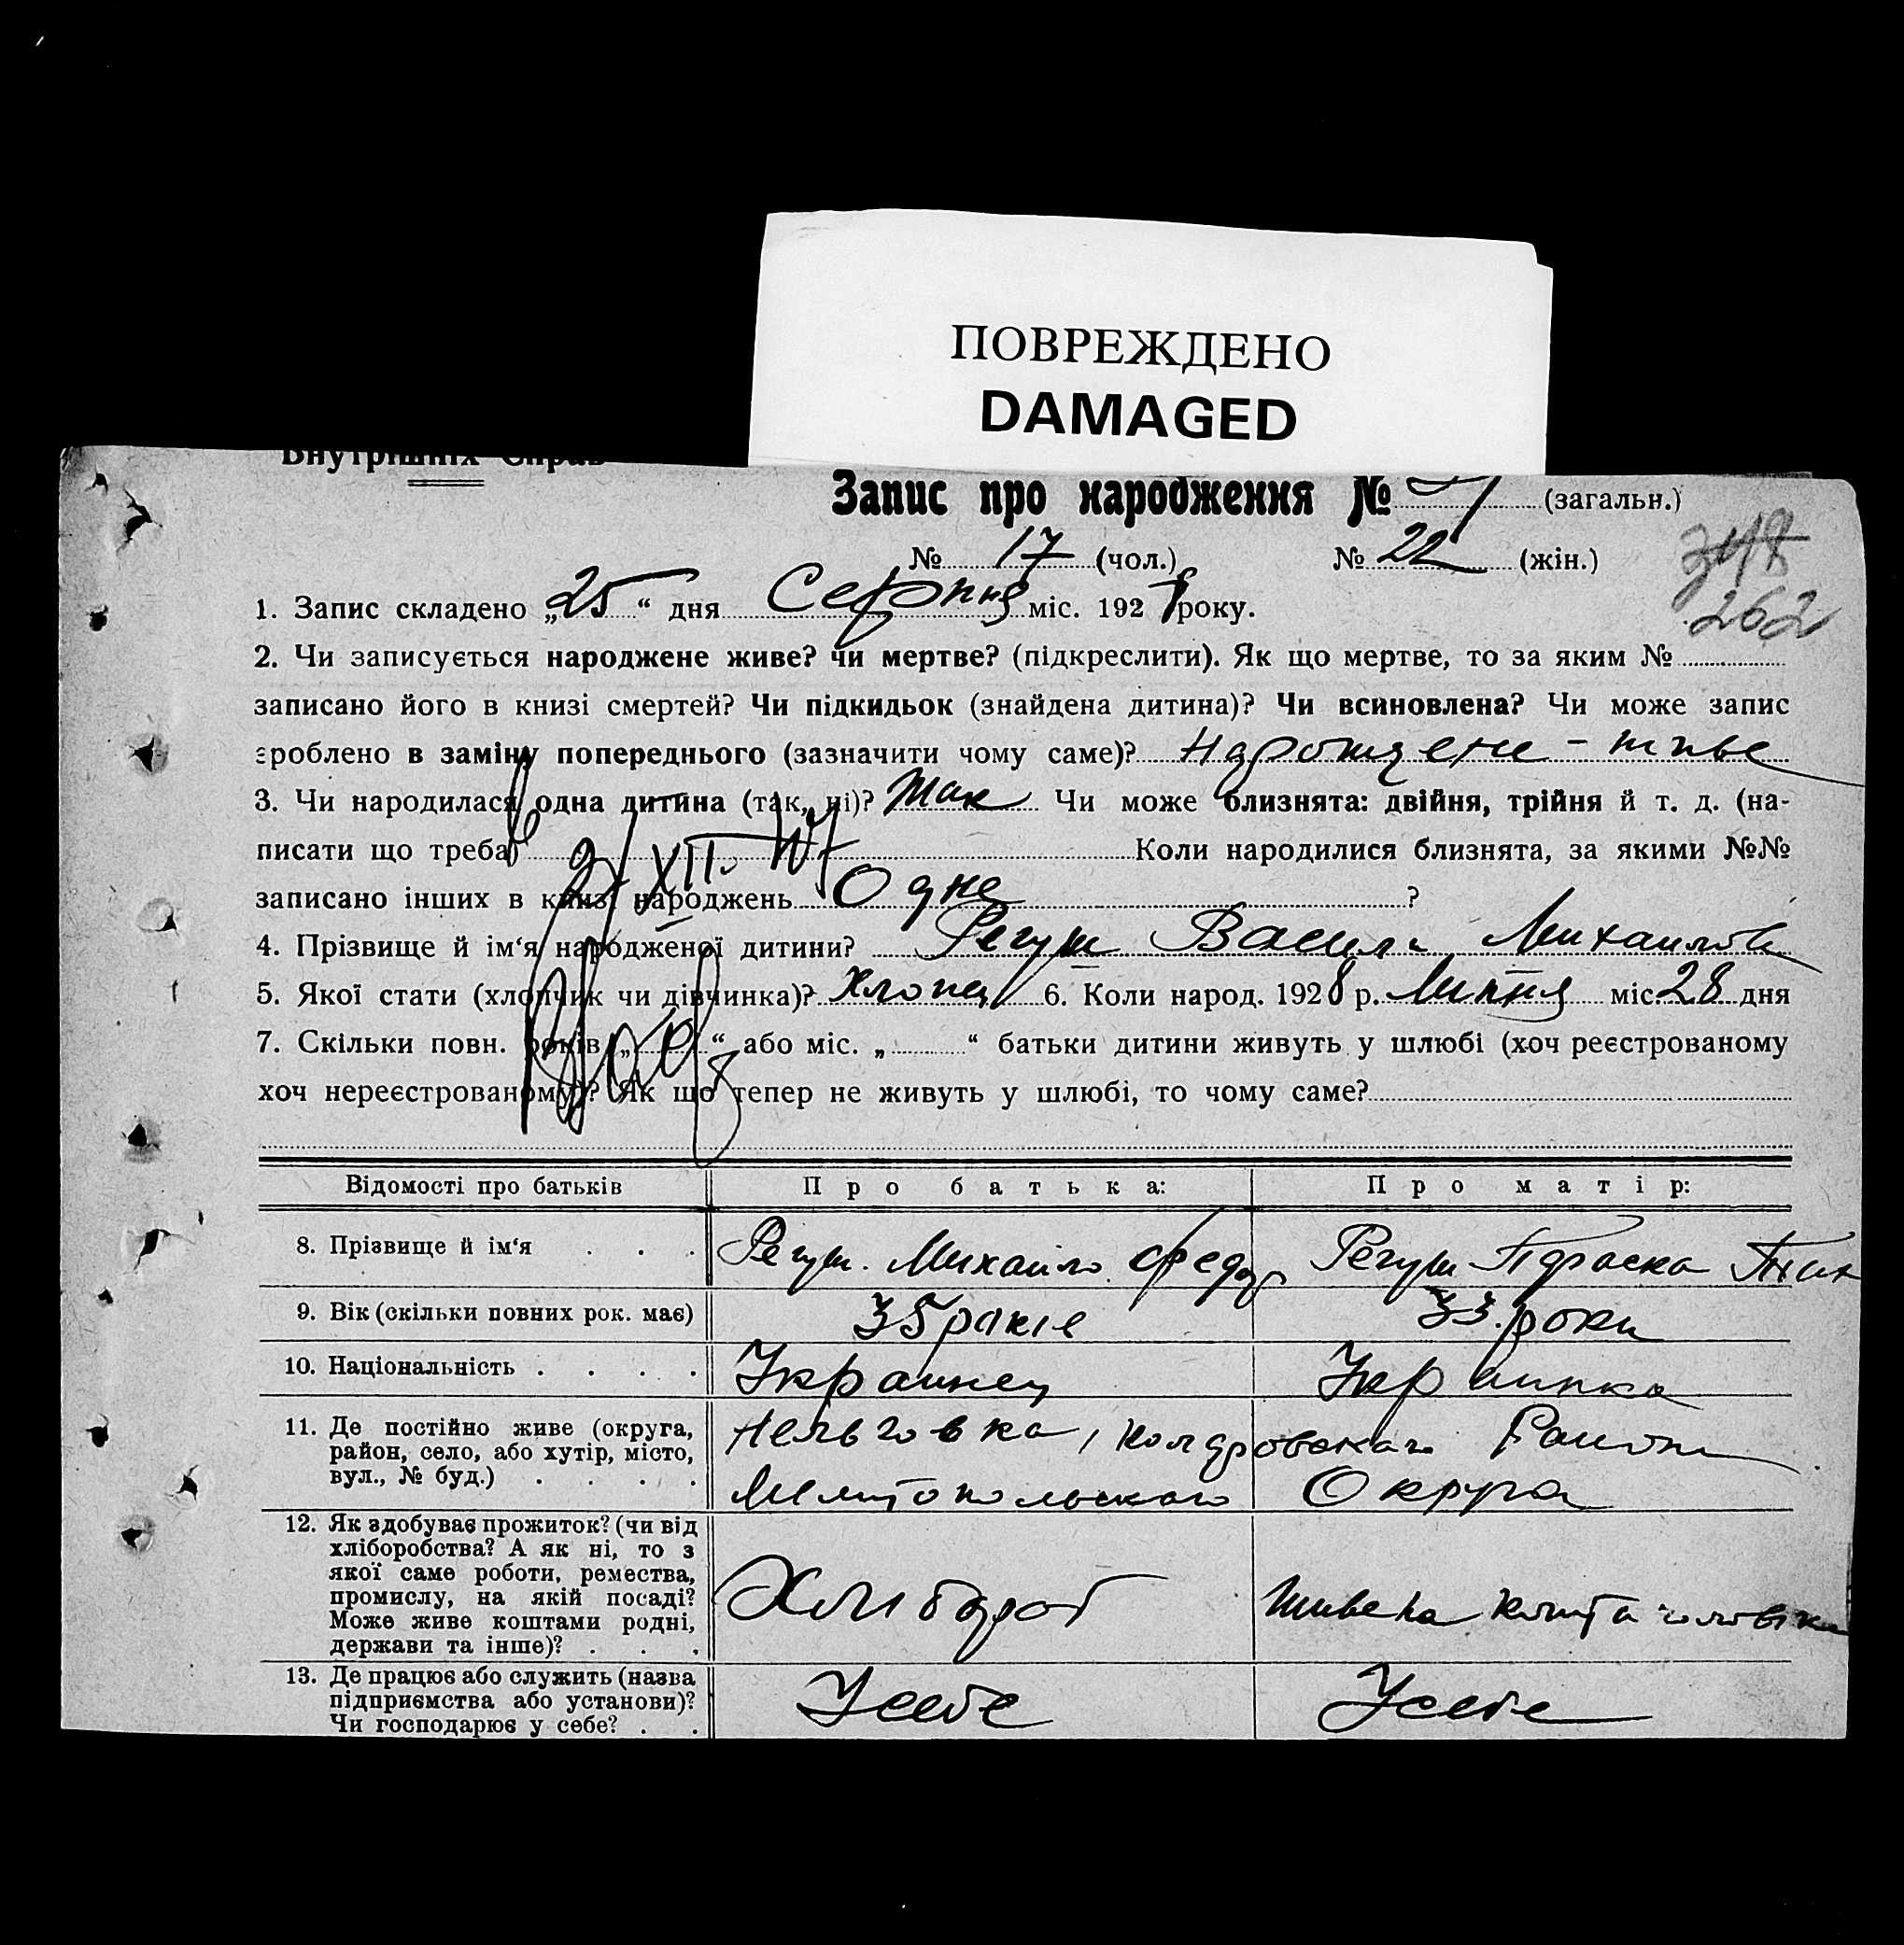 ПОВРЕЖДЕНО
DAMAGED
Внутрішніх Справ
Запис про народження № (загальн.)
№ 17 (чол.) № 22 (жін.)
348
262
1. Запис складено „25“ дня Серпня міс. 1928 року.
2. Чи записується народжене живе? чи мертве? (підкреслити). Як що мертве, то за яким №
записано його в книзі смертей? Чи підкидьок (знайдена дитина)? Чи всиновлена? Чи може запис
зроблено в заміну попереднього (зазначити чому саме)? живе
3. Чи народилася одна дитина (так, ні)? Так Чи може близнята: двійня, трійня й т. д. (на-
писати що треба) Коли народилися близнята, за якими №№
XII
записано інших в книзі народжень Одне ?
4. Прізвище й ім‘я народженої дитини? Регуш Василь
5. Якої стати (хлопчик чи дівчинка)? Хлопец 6. Коли народ. 1928 р. Липня міс. 28 дня
7. Скільки повн. років „ “ або міс. „ “ батьки дитини живуть у шлюбі (хоч реєстрованому
хоч нереєстрованому)? Як що тепер не живуть у шлюбі, то чому саме?
Відомості про батьків Про батька: Про матір:
8. Прізвище й ім‘я . . . Регуш Михайло Федор Регуш
9. Вік (скільки повних рок. має) 35 років 33 роки
10. Національність . . . . Украинец Украинка
11. Де постійно живе (округа,
район, село, або хутір, місто,
вул., № буд.) . . . .
Нельговка, Района
Округа
12. Як здобуває прожиток? (чи від
хліборобства? А як ні, то з
якої саме роботи, ремества,
промислу, на якій посаді?
Може живе коштами родні,
держави та інше)? . . .
Хлибороб
13. Де працює або служить (назва
підприємства або установи)?
Чи господарює у себе? . .
У себе У себе